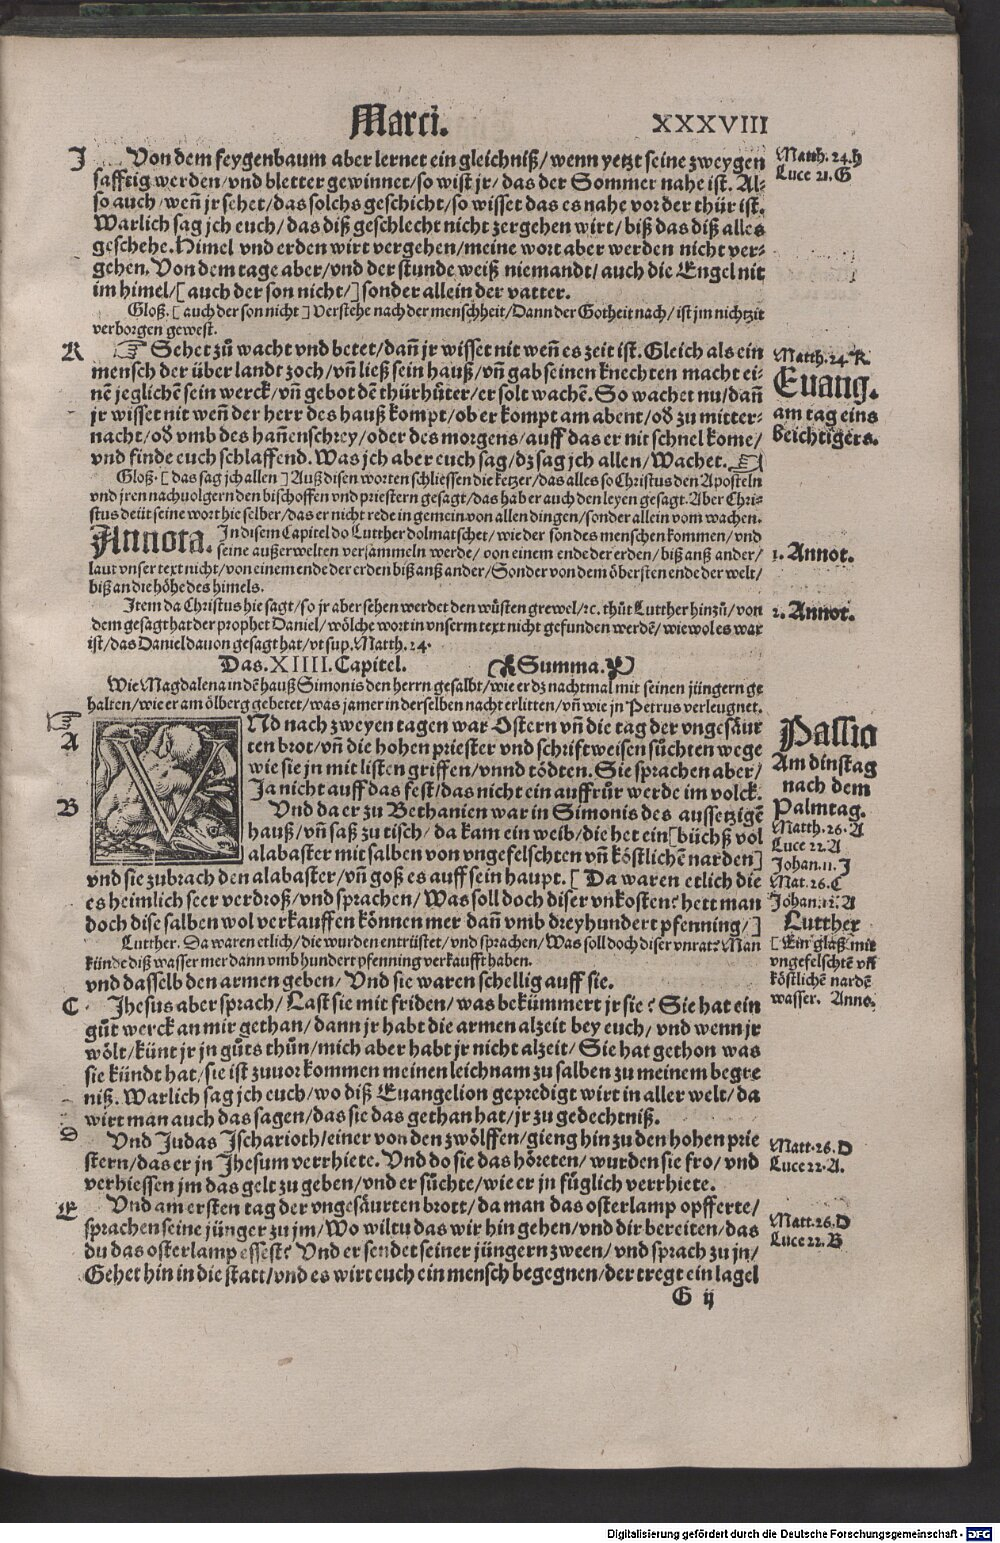 Marci.
XXXVIII
J Von dem feygenbaum aber lernet ein gleichniß/ wenn yetzt seine zweygen
safftig werden/ vnd bletter gewinnet/ so wist jr/ das der Sommer nahe ist. Al-
so auch/ wen̄ jr sehet/ das solchs geschicht/ so wisset das es nahe vor der thür ist.
Warlich sag jch euch/ das diß geschlecht nicht zergehen wirt/ biß das diß alles
geschehe. Himel vnd erden wirt vergehen/ meine wort aber werden nicht ver-
gehen. Von dem tage aber/ vnd der stunde weiß niemandt/ auch die Engel nit
im himel/ [ auch der son nicht/ ] sonder allein der vatter.
Matth. 24. h
Luce 21. G
Gloß. [ auch der son nicht ] Verstehe nach der menschheit/ Dann der Gotheit nach/ ist jm nichtzit
verborgen gewest.
K ☞ Sehet zů wacht vnd betet/ dan̄ jr wisset nit wen̄ es zeit ist. Gleich als ein
mensch der über landt zoch/ vn̄ ließ sein hauß/ vn̄ gab seinen knechten macht ei-
nē jeglichē sein werck/ vn̄ gebot dē thürhüter/ er solt wachē. So wachet nu/ dan̄
jr wisset nit wen̄ der herr des hauß kompt/ ob er kompt am abent/ od̄ zu mitter-
nacht/ od̄ vmb des han̄enschrey/ oder des morgens/ auff das er nit schnel kome/
vnd finde euch schlaffend. Was jch aber euch sag/ dz sag jch allen/ Wachet. ☜
Matth. 24. K
Euang.
am tag eins
beichtigers.
Gloß. [ das sag jch allen ] Auß disen worten schliessen die ketzer/ das alles so Christus den Aposteln
vnd jren nachuolgern den bischoffen vnd priestern gesagt/ das hab er auch den leyen gesagt. Aber Chri-
stus deüt seine wort hie selber/ das er nicht rede in gemein von allen dingen/ sonder allein vom wachen.
Annota. In disem Capitel do Lutther dolmatschet/ wie der son des menschen kommen/ vnd
seine außerwelten versammeln werde/ von einem ende der erden/ biß anß ander/
laut vnser text nicht/ von einem ende der erden biß anß ander/ Sonder von dem öbersten ende der welt/
biß an die höhe des himels.
1. Annot.
Item da Christus hie sagt/ so jr aber sehen werdet den wůsten grewel/ ꝛc. thůt Lutther hinzů/ von
dem gesagt hat der prophet Daniel/ wölche wort in vnserm text nicht gefunden werdē/ wiewol es war
ist/ das Daniel dauon gesagt hat/ vt sup. Matth. 24.
2. Annot.
Das. XIIII. Capitel. Summa.
Wie Magdalena in dē hauß Simonis den herrn gesalbt/ wie er dz nachtmal mit seinen jüngern ge
halten/ wie er am ölberg gebetet/ was jamer in derselben nacht erlitten/ vn̄ wie jn Petrus verleugnet.
☞ A VNd nach zweyen tagen war Ostern vn̄ die tag der vngesäur
ten brot/ vn̄ die hohen priester vnd schrifftweisen sůchten wege
wie sie jn mit listen griffen/ vnnd tödten. Sie sprachen aber/
Ja nicht auff das fest/ das nicht ein auffrůr werde im volck.
B Vnd da er zu Bethanien war in Simonis des aussetzigē
hauß/ vn̄ saß zu tisch/ da kam ein weib/ die het ein [ büchß vol
alabaster mit salben von vngefelschten vn̄ köstlichē narden ]
vnd sie zubrach den alabaster/ vn̄ goß es auff sein haupt. [ Da waren etlich die
es heimlich seer verdroß/ vnd sprachen/ Was soll doch diser vnkosten? hett man
doch dise salben wol verkauffen können mer dan̄ vmb dreyhundert pfenning/ ]
Passio
Am dinstag
nach dem
Palmtag.
Matth. 26. A
Luce 22. A
Johan. 11. J
Mat. 26. C
Johan. 12. A
Lutther
[ Ein glaß mit
vngefelschtē vn̄
köstlichē nardē
wasser. Anno.
Lutther. Da waren etlich/ die wurden entrüstet/ vnd sprachen/ Was soll doch diser vnrat? Man
künde diß wasser mer dann vmb hundert pfenning verkaufft haben.
vnd dasselb den armen geben/ Vnd sie waren schellig auff sie.
C Jhesus aber sprach/ Last sie mit friden/ was bekümmert jr sie? Sie hat ein
gůt werck an mir gethan/ dann jr habt die armen alzeit bey euch/ vnd wenn jr
wölt/ künt jr jn gůts thůn/ mich aber habt jr nicht alzeit/ Sie hat gethon was
sie kündt hat/ sie ist zuuor kommen meinen leichnam zu salben zu meinem begre
niß. Warlich sag jch euch/ wo diß Euangelion gepredigt wirt in aller welt/ da
wirt man auch das sagen/ das sie das gethan hat/ jr zu gedechtniß.
D Vnd Judas Jscharioth/ einer von den zwölffen/ gieng hin zu den hohen prie
stern/ das er jn Jhesum verrhiete. Vnd do sie das höreten/ wurden sie fro/ vnd
verhiessen jm das gelt zu geben/ vnd er sůchte/ wie er jn füglich verrhiete.
Matt. 26. D
Luce 22. A.
E Vnd am ersten tag der vngesäurten brott/ da man das osterlamp opfferte/
sprachen seine jünger zu jm/ Wo wiltu das wir hin gehen/ vnd dir bereiten/ das
du das osterlamp essest? Vnd er sendet seiner jüngern zween/ vnd sprach zu jn/
Gehet hin in die statt/ vnd es wirt euch ein mensch begegnen/ der tregt ein lagel
Matt. 26. D
Luce 22. B
G ij
Digitalisierung gefördert durch die Deutsche Forschungsgemeinschaft - DFG